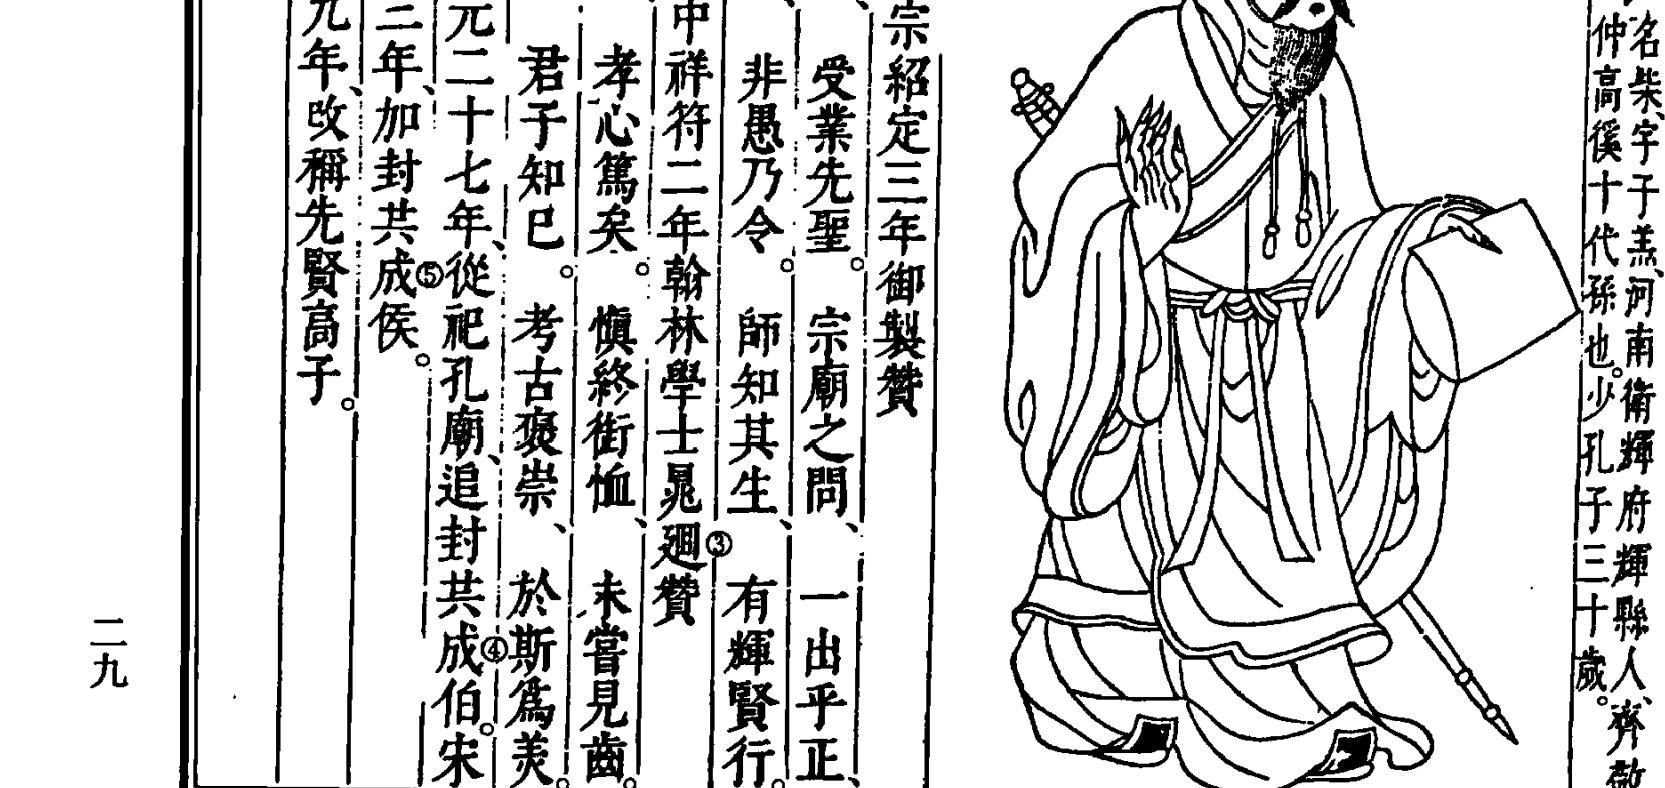 名柴、字子羔、河南衛輝府輝縣人、齊敬
仲高傒十代孫也。少孔子三十歲。
宗紹定三年御製贊
受業先聖。宗廟之問、一出乎正、
非愚乃令。師知其生、有輝賢行。
中祥符二年翰林學士晁迥③贊
孝心篤矣。慎終銜恤、未嘗見齒。
君子知已。考古褒崇、於斯爲美。
元二十七年、從祀孔廟、追封共成④伯。宋
三年、加封共成⑤侯。
元年、改稱先賢高子。
二九